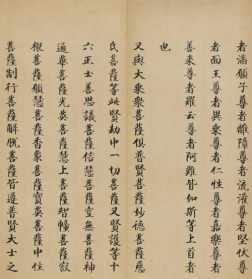 者滿願子尊者離障尊者流灌尊者堅伏尊
者面王尊者異乘尊者仁性尊者嘉樂尊者
善來尊者羅云尊者阿難皆如斯等上首者
也
又與大乘衆菩薩俱普賢菩薩妙德菩薩慈
氏菩薩等此賢劫中一切菩薩又賢護等十
六正士善思議菩薩信慧菩薩空無菩薩神
通華菩薩光英菩薩慧上菩薩智幢菩薩寂
根菩薩願慧菩薩香象菩薩寶英菩薩中住
菩薩制行菩薩解脫菩薩皆遵普賢大士之